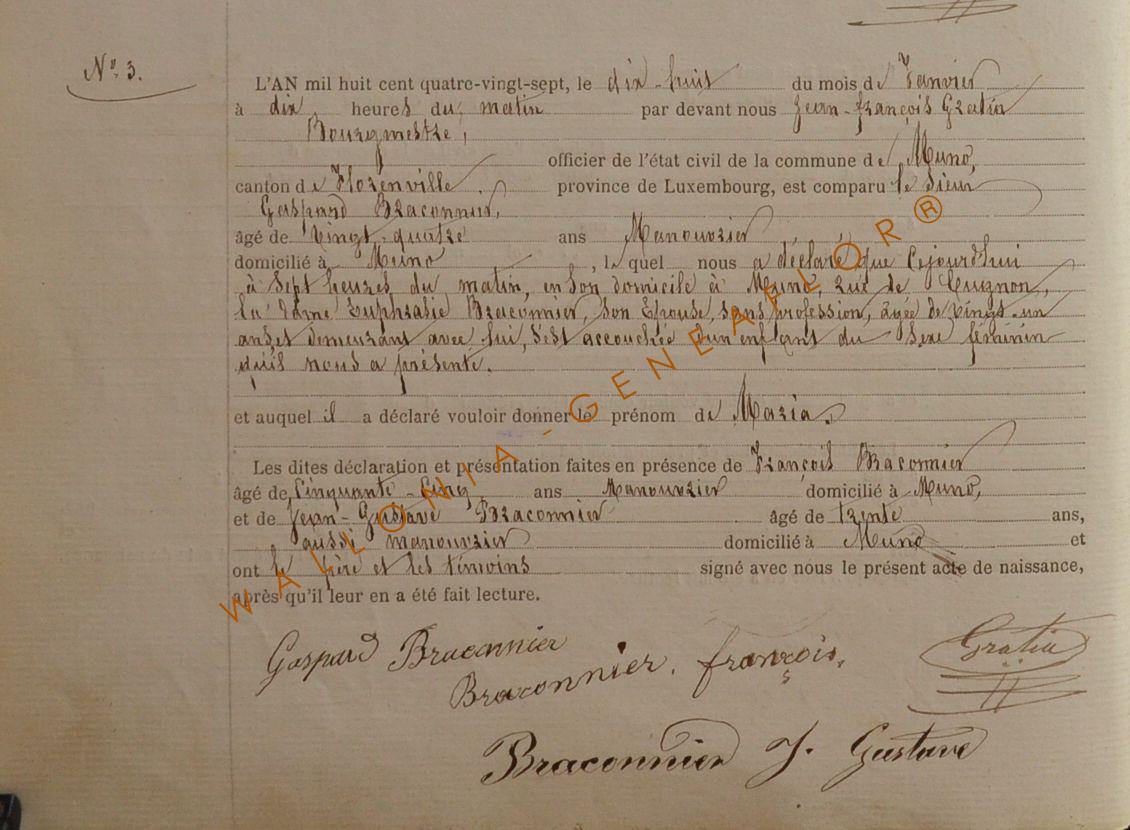 N° 3.
L'AN mil huit cent quatre-vingt-sept, le dix-huit du mois de Janvier
à dix heures du matin par devant nous Jean-françois Gratia
Bourgmestre,
officier de l'état civil de la commune de Muno,
canton de Florenville, province de Luxembourg, est comparu le Sieur
Gaspard Braconnier,
âgé de Vingt-quatre ans Manouvrier
domicilié à Muno, lequel nous a déclaré que Cejourdhui
à Sept heures du matin, en son domicile à Muno, rue de Cugnon,
la Dame Euphrasie Braconnier, son Epouse, sans profession, agée de Vingt-un
ans et demeurant avec lui, s'est accouchée d'un enfant du Sexe féminin
qu'il nous a présenté.
et auquel il a déclaré vouloir donner le prénom de Maria.
Les dites déclaration et présentation faites en présence de François Braconnier
âgé de Cinquante-Cinq ans Manouvrier domicilié à Muno,
et de Jean-Gustave Braconnier âgé de trente ans,
aussi manouvrier domicilié à Muno et
ont le père et les témoins signé avec nous le présent acte de naissance,
après qu'il leur en a été fait lecture.
Gaspard Braconnier
Braconnier. françois.
Gratia
Braconnier J. Gustave
WALLONIA-GENEAFLOR®